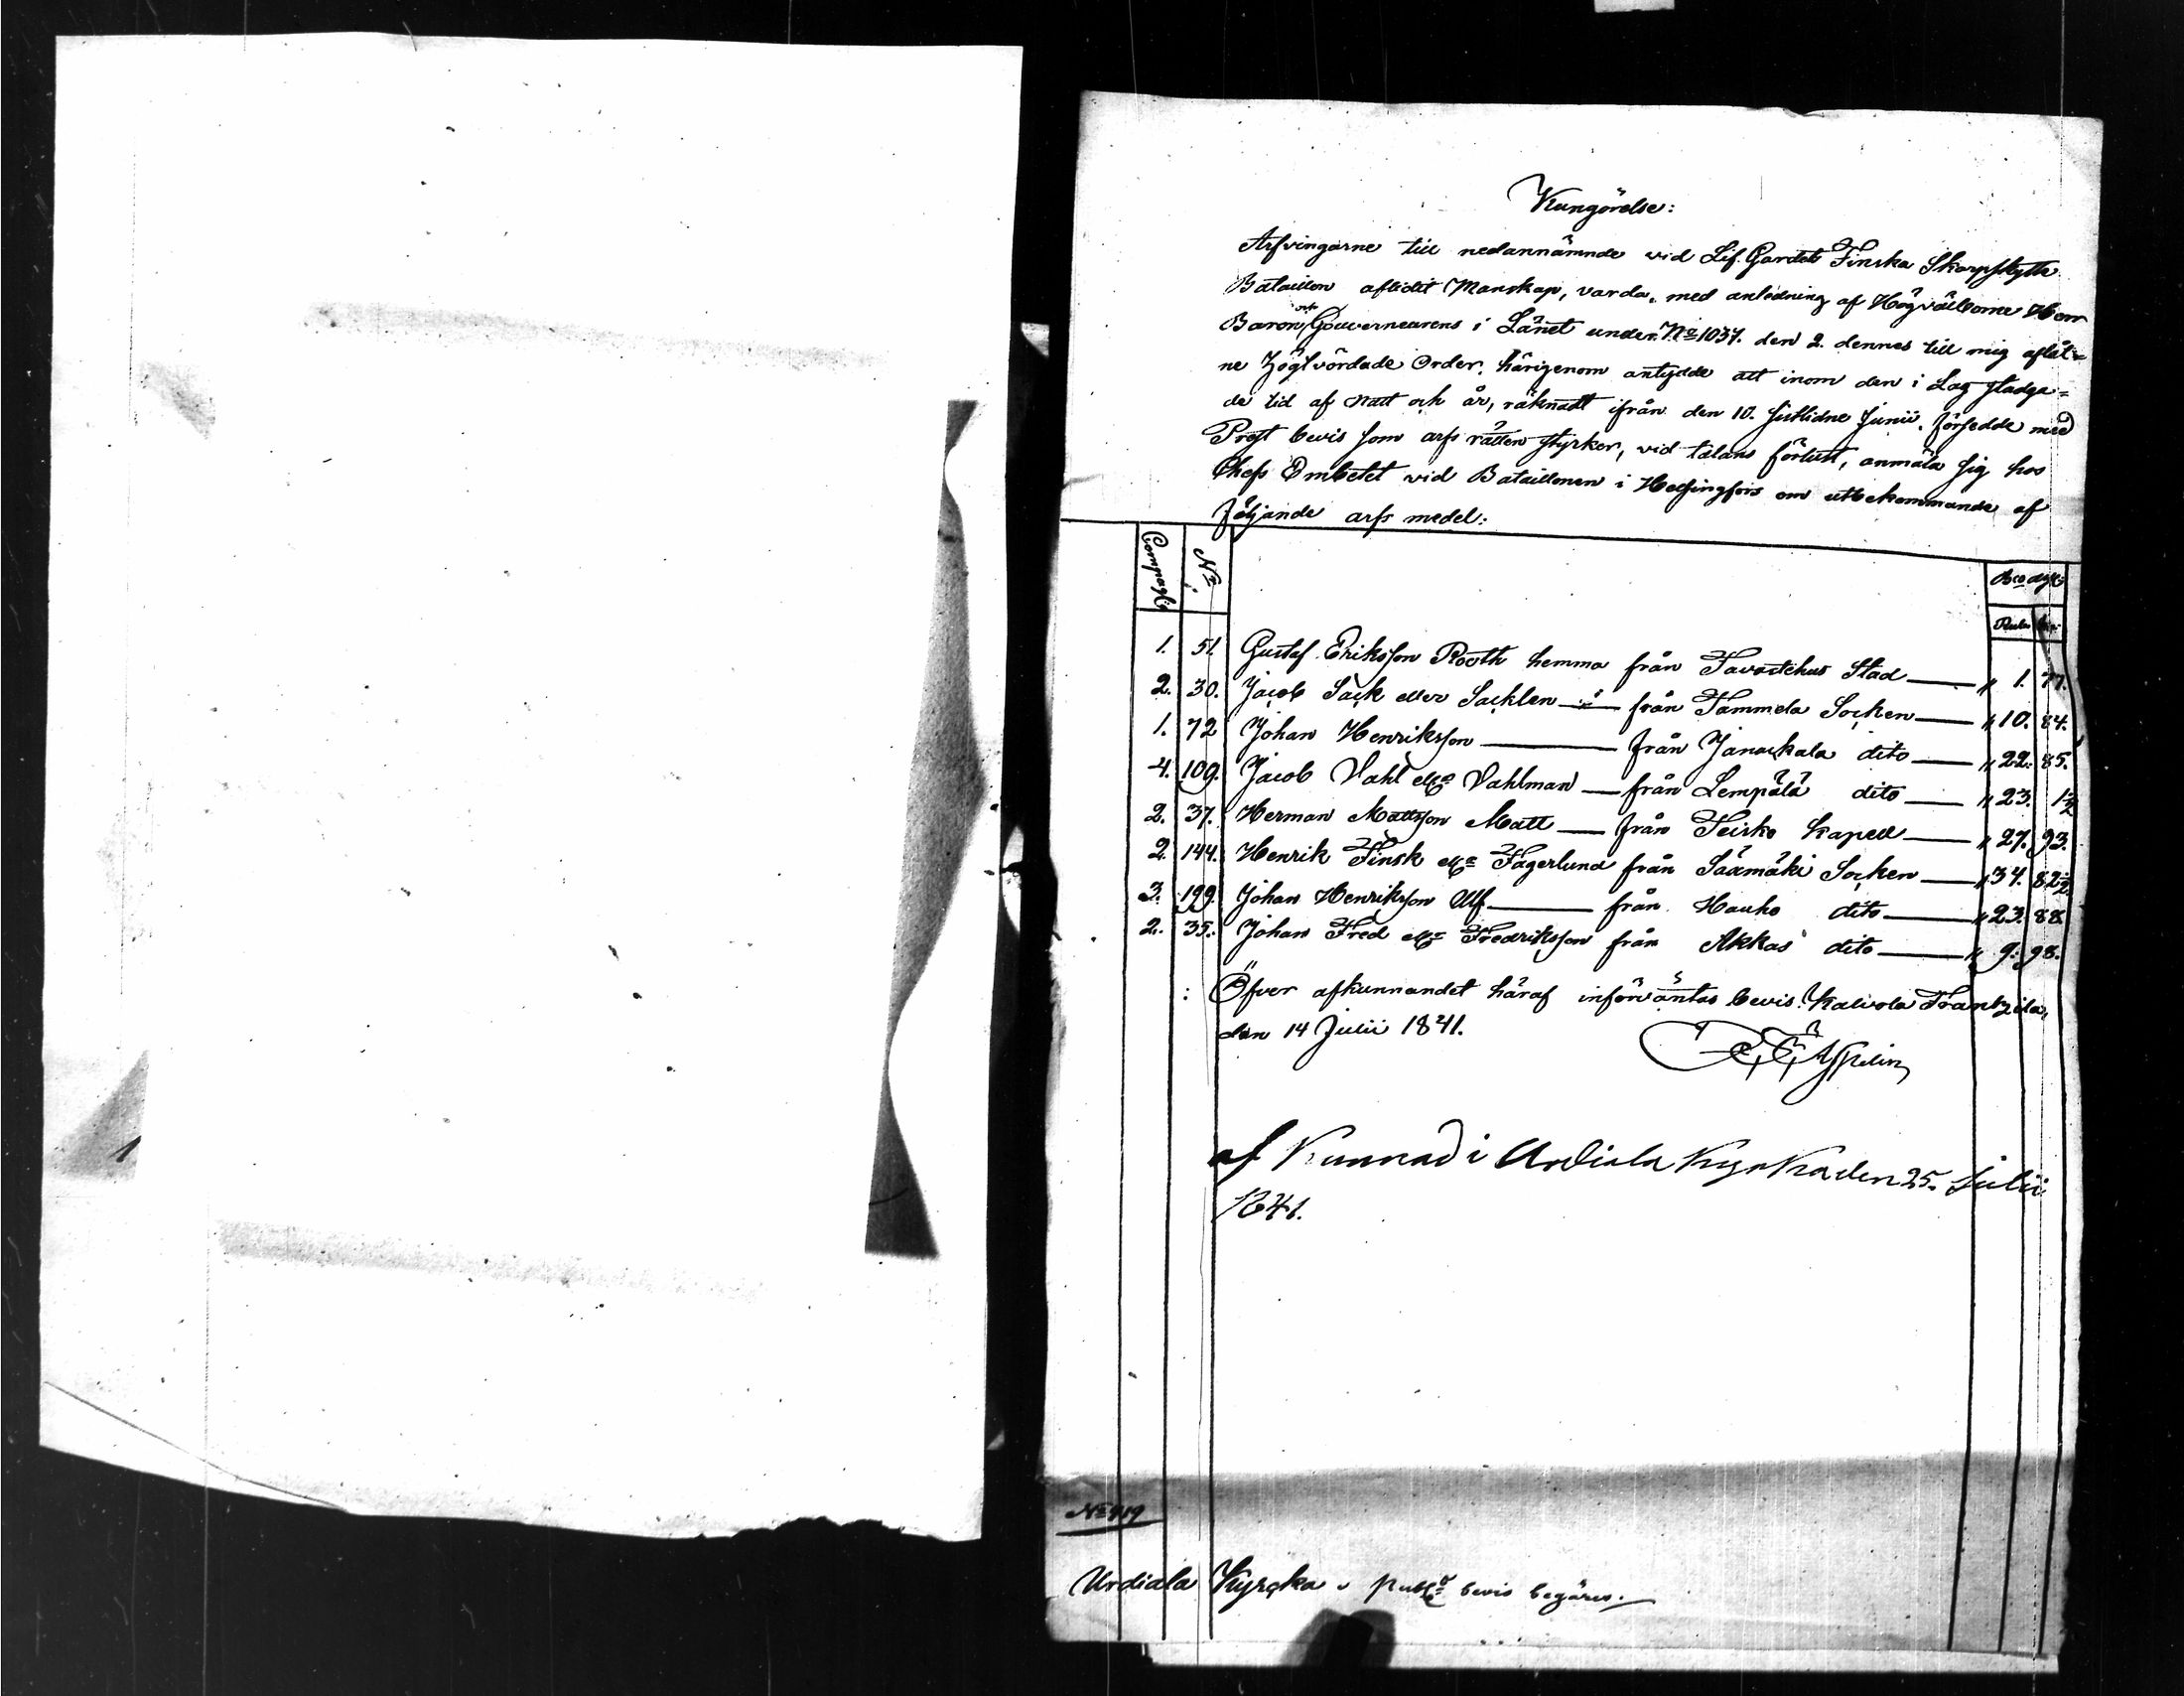 Kungörelse:
Arfvingarne till nedannämnde vid Lif Gardets Finska Skarpskytte
Bataillon aflidit Manskap, varda, med anledning af Högvälborne Herr
Baron och Gouverneurens i Länet under No 1037. den 2. dennes till mig aflåt-
ne högtvördade Order, härigenom antydde att inom den i Lag stadga-
de tid af natt och år, räknadt ifrån den 10. sistlidne Junii, försedde med
Prest bevis som arfs rätten styrker, vid talans förlust, anmäla sig hos
Chefs Embetet vid Bataillonen i Helsingfors om utbekommande af
följande arfs medel:
Compagn: No: Bco Assig:
Rubel Kop:
1. 51. Gustaf Eriksson Rooth hemma från Tavastehus Stad — " 1. 77.
2. 30. Jacob Sack eller Sacklen — " — från Tammela Socken — " 10. 84.
1. 72 Johan Henriksson — från Janackala dito — " 22. 85.
4. 109. Jacob Dahl elr Dahlman — från Lempälä dito — " 23. 1½
2. 37. Herman Mattsson Matt — från Teisko Kapell — " 27. 93.
2. 144. Henrik Finsk elr Fagerlund från Säxmäki Socken — " 34. 82½
3. 199. Johan Henriksson Ulf — från Hauho dito — " 23. 88.
2. 35. Johan Fred elr Fredriksson från Akkas dito — " 9. 98.
Öfver afkunnandet häraf införväntas bevis. Kalvola Frantzila,
den 14 Julii 1841.
af Kunnad i Urdiala Kyrka den 25. Julii
1841.
No 919
Urdiala Kyrcka, publ: bevis begäres.